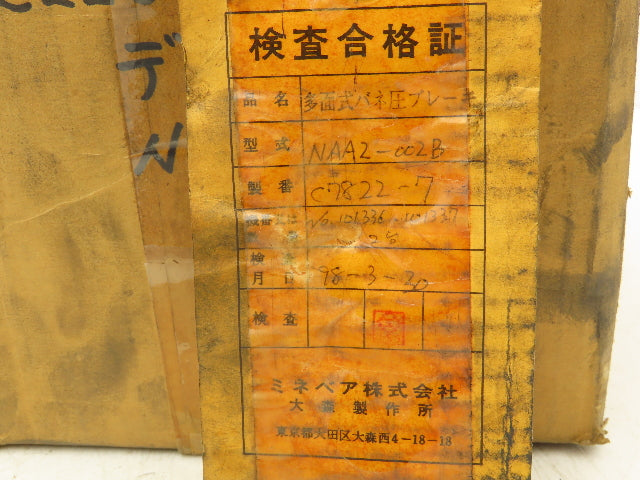 デ
N
検査合格証
品名 多面式バネ圧ブレーキ
型式 NAA2-002B
製番 C7822-7
No.101336
25
検
月日 98-3-20
検査
ミネベア株式会社
大森製作所
東京都大田区大森西4-18-18